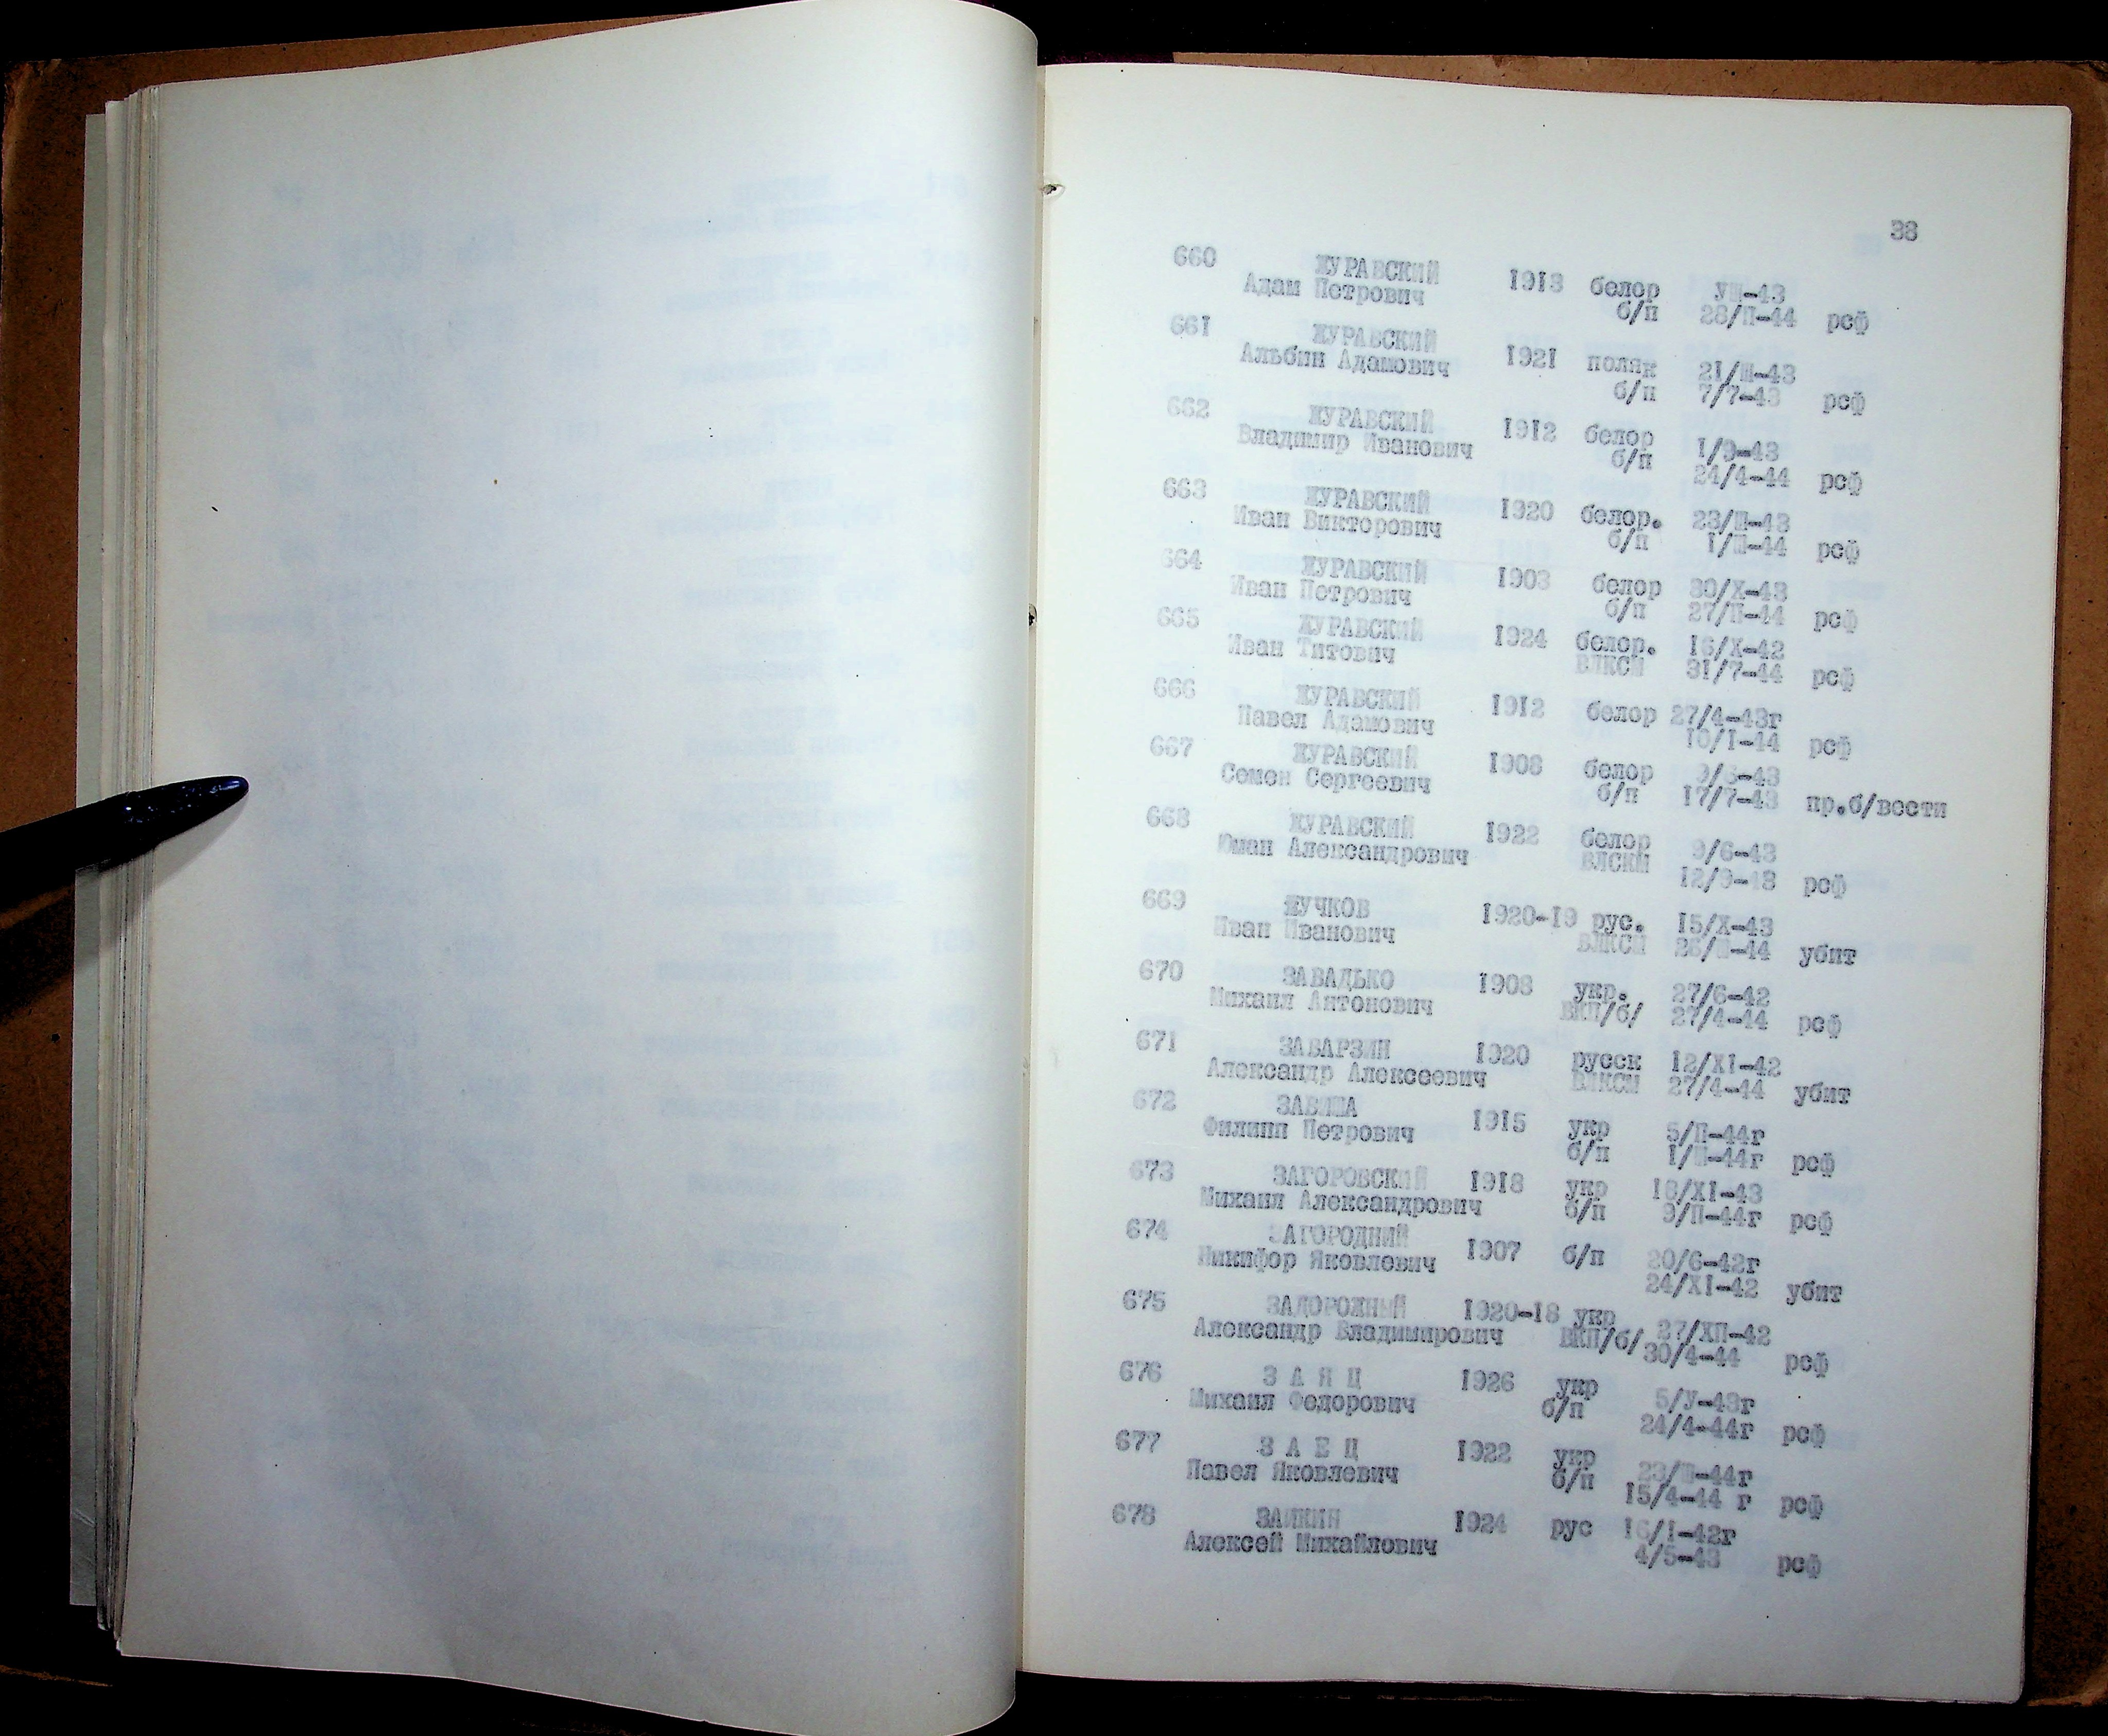 38
660 ЖУРАВСКИЙ 1913 белор УШ-43
Адам Петрович б/п 28/П-44 рсф
661 ЖУРАВСКИЙ
Альбин Адамович 1921 поляк 21/Ш-43
б/п 7/7-43 рсф
662 ЖУРАВСКИЙ 1912 белор 1/9-43
Владимир Иванович б/п 24/4-44 рсф
663 ЖУРАВСКИЙ 1920 белор. 23/Ш-43
Иван Викторович б/п 1/Ш-44 рсф
664 ЖУРАВСКИЙ 1903 белор 30/X-43
Иван Петрович б/п 27/П-44 рсф
665 ЖУРАВСКИЙ 1924 белор. 16/X-42
Иван Титович ВЛКСМ 31/7-44 рсф
666 ЖУРАВСКИЙ 1912 белор 27/4-43г
Павел Адамович 10/I-44 рсф
667 ЖУРАВСКИЙ 1908 белор 9/6-43
Семен Сергеевич б/п 17/7-43 пр.б/вести
668 ЖУРАВСКИЙ 1922 белор 9/6-43
Юман Александрович ВЛСКМ
12/9-43 рсф
669 ЖУЧКОВ 1920-19 рус. 15/X-43
Иван Иванович ВЛКСМ 26/Ш-44 убит
670 ЗАВАДЬКО 1908 укр. 27/6-42
Михаил Антонович ВКП/б/ 27/4-44 рсф
671 ЗАВАРЗИН 1920 русск 12/XI-42
Александр Алексеевич ВЛКСМ 27/4-44 убит
672 ЗАВИША 1915 укр 5/П-44г
Филипп Петрович б/п 1/Ш-44г рсф
673 ЗАГОРОВСКИЙ 1918 укр 18/XI-43
Михаил Александрович б/п 9/П-44г рсф
674 ЗАГОРОДНИЙ 1907 б/п 20/6-42г
Никифор Яковлевич 24/XI-42 убит
675 ЗАДОРОЖНЫЙ 1920-18 укр 27/ХП-42
Александр Владимирович ВКП/б/ 30/4-44 рсф
676 З А Я Ц 1926 укр 5/У-43г
Михаил Федорович б/п 24/4-44г рсф
677 З А Е Ц 1922 укр 23/Ш-44г
Павел Яковлевич б/п 15/4-44 г рсф
678 ЗАИКИН 1924 рус 16/I-42г
Алексей Михайлович 4/5-43 рсф